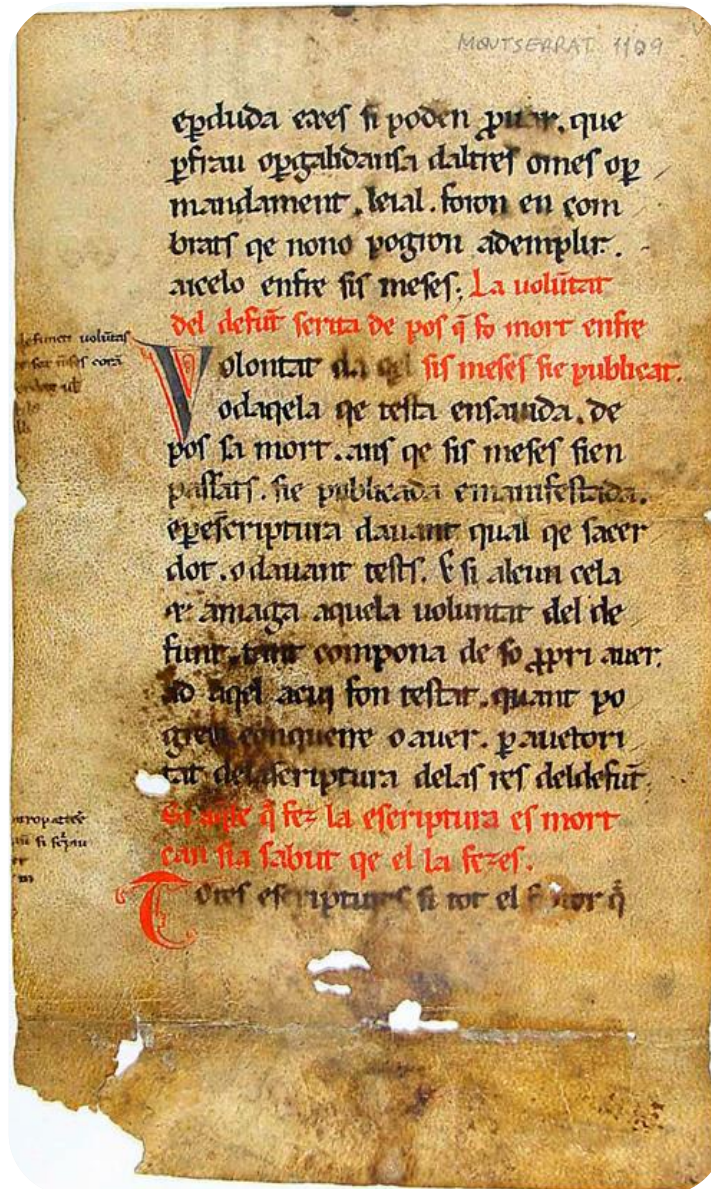 MONTSERRAT 1109
eꝑduda eres si poden ꝓuar. que
ꝑfrau oꝑgalidansa daltres omes oꝑ
mandament. leial. foron en com
brats qe nono pogron ademplir.
aicelo enfre sis meses; La uolūtat
del defūt scrita de pos q̄ fo mort enfre
sis meses sie publicat.
Volontat da qel
odaqela qe testa ensauida. de
pos sa mort. ans qe sis meses sien
passats. sie publicada emanifestada.
eꝑescriptura dauant qual qe sacer
dot. o dauant tests. E si alcun cela
amaga aquela uoluntat del de
funt. tant compona de so ꝓpri auer.
ad aqel acui fon testat. quant po
conquerre o auer. ꝑ auctori
tat delascriptura delas res deldefūt.
Si q̄ fez la escriptura es mort
can sia sabut qe el la fezes.
Totes escriptures si tot el q̄
defuncti uolūtas